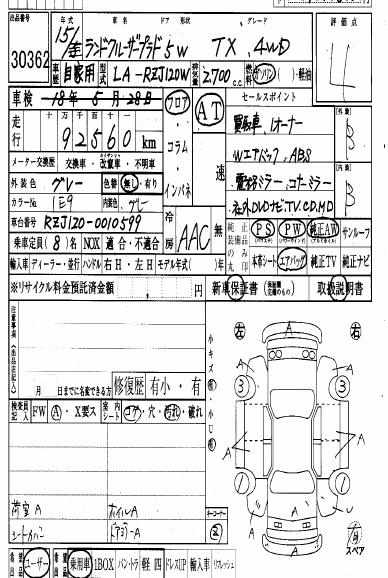 出品番号 年式 車名 ドア 形状 グレード 評価点
30362 15/ ランドクルーザープラド 5W TX 4WD 4
車歴 自家用 型式 LA-RZJ120W 排気量 2,700 c.c. 燃料 ガソリン 軽油
車検 18年 5月 28日 フロア AT セールスポイント 外装
走行 92560 km コラム 速 買取車 1オーナー B
十万 万 千 百 十
インパネ Wエアバック、ABS
メーター交換歴 交換車・改ざん車・不明車 内装
外装色 グレー 色替 無し・有り 電格ミラー、コーナーミラー B
カラーNo. 1E9 内装色 グレー 社外DVDナビ、TV、CD、MD
車台番号 RZJ120-0010599 冷房 AAC 無 純正装備品のみ丸印 PS PW 純正AW サンルーフ
乗車定員 (8)名 NOX 適合・不適合 本革シート エアバッグ 純正TV 純正ナビ
輸入車 ディーラー・並行 ハンドル 右H・左H モデル年式( )年
※リサイクル料金預託済金額 円 新車保証書 取扱説明書
注意事項(出品店記入) 小キズ 左 A 右
A A
3 3
月 日までに名変できる方 修復歴 有小・有
検査員記入 FW A・X要ス 室内シート コゲ・穴・汚れ・破れ
A A A A
A U
荷室A ホイルA
シートカバー ドア A 3 3
A スペア
ユーザー 乗用車 1BOX バン・トラ 軽四 ドレスUP 輸入車 リフレッシュ